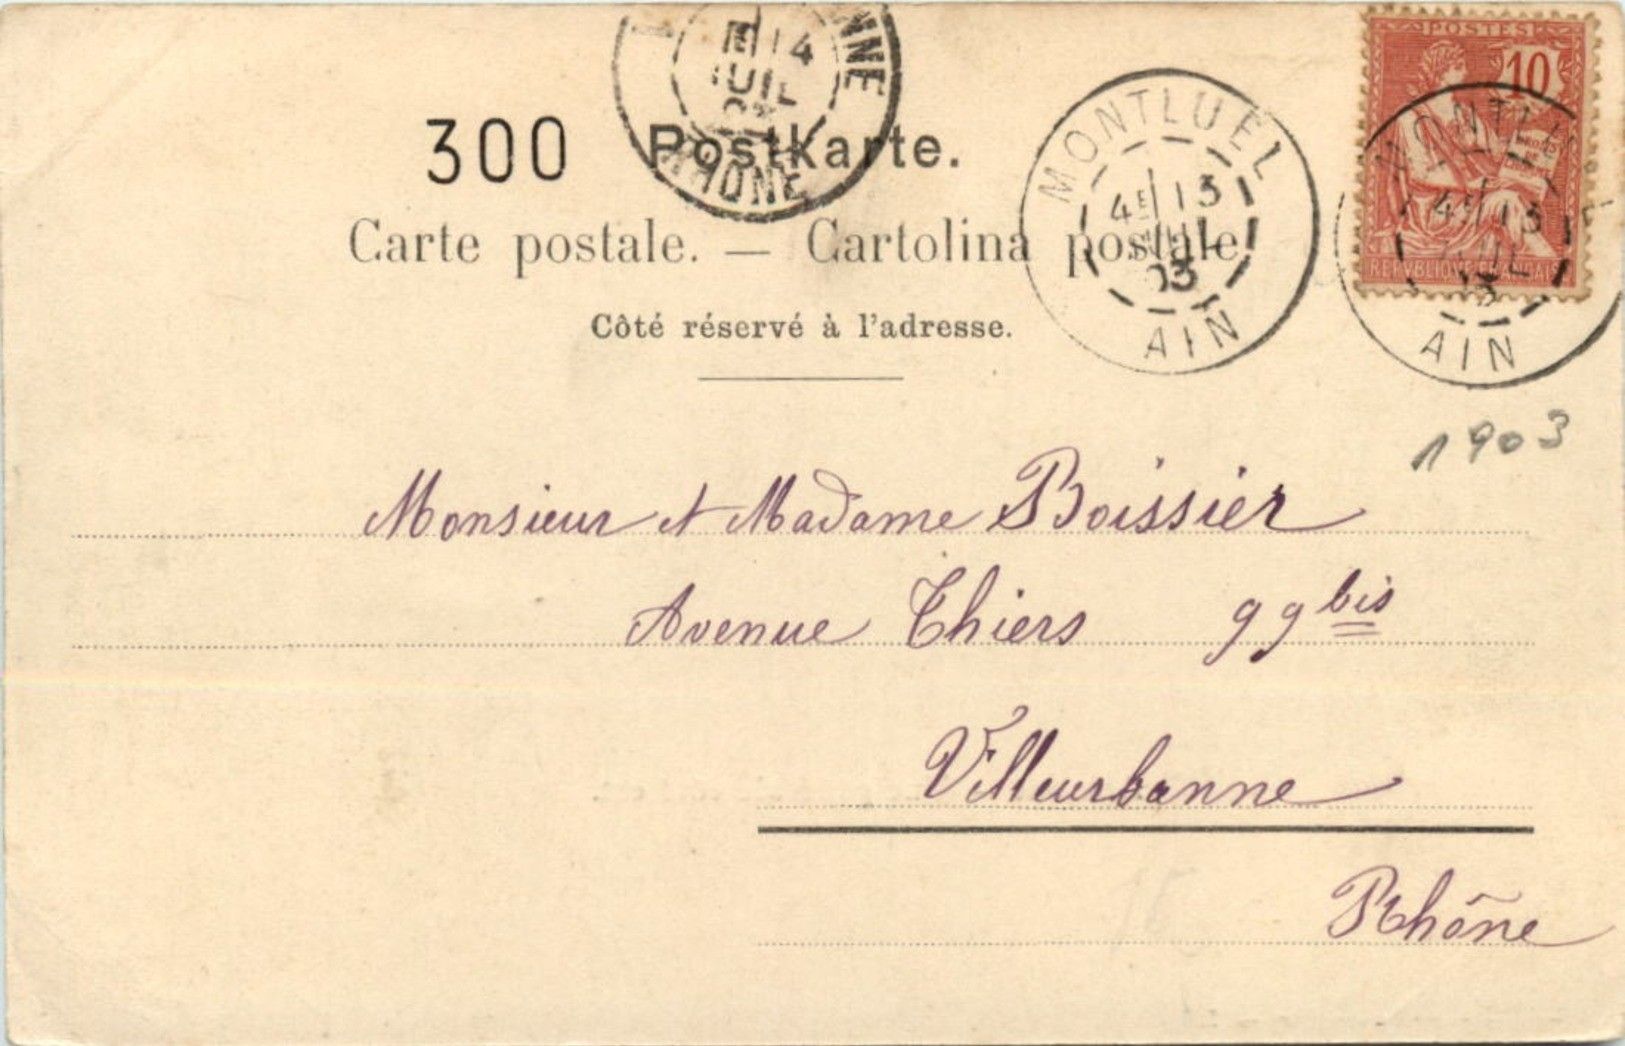 300 Postkarte.
Carte postale. — Cartolina postale
Côté réservé à l'adresse.
E 14
JUIL
RHONE
MONTLUEL
4E 13
JUIL
03
AIN
POSTES
10
4E 13
AIN
1903
Monsieur et Madame Boissier
Avenue Thiers 99 bis
Villeurbanne
Rhône